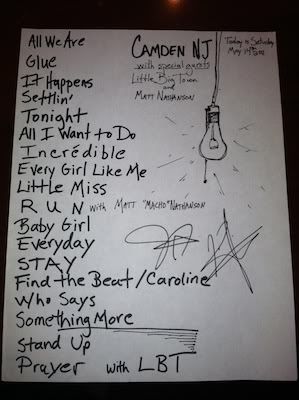 All We Are
Glue
It Happens
Settlin'
Tonight
All I Want to Do
Incredible
Every Girl Like Me
Little Miss
RUN with Matt "Macho" Nathanson
Baby Girl
Everyday
STAY
Find the Beat/Caroline
Who Says
Something More
Stand Up
Prayer with LBT
CAMDEN NJ
with special guests
Little Big Town
and
Matt Nathanson
Today is Saturday
May